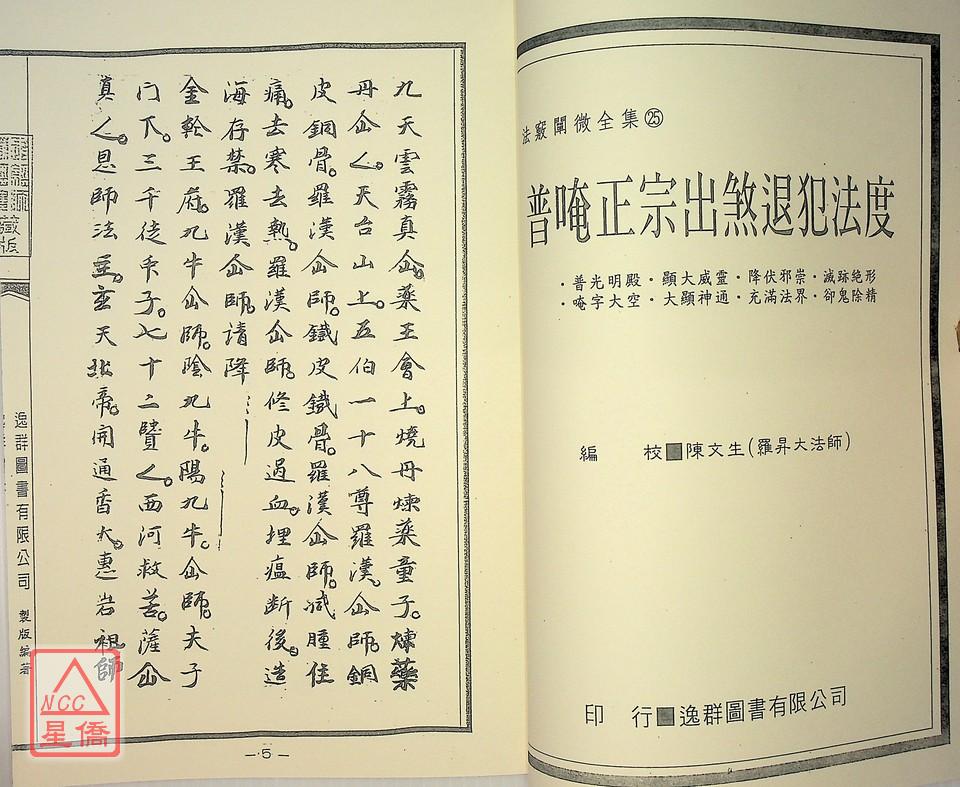 法竅闡微全集㉕
普唵正宗出煞退犯法度
・普光明殿・顯大威靈・降伏邪祟・滅跡絕形
・唵字大空・大顯神通・充滿法界・卻鬼除精
編 校■陳文生(羅昇大法師)
印 行■逸群圖書有限公司
九天雲霧真仚。藥王會上。燒丹煉藥童子。煉藥
丹仚人。天台山上。五伯一十八尊羅漢。仚師。銅
皮銅骨。羅漢仚師。鐵皮鐵骨。羅漢仚師。減腫住
痛。去寒去熱。羅漢仚師。修皮過血。埋瘟斷後。造
海存禁。羅漢仚師。請降
金輪王府。九牛仚師。陰九牛。陽九牛。仚師。夫子
门下。三千徒弟子。七十二賢人。西河救苦。薩仚
真人。恩師法主。玄天北帝。開通香火。惠岩祖師
逸群圖書有限公司 製版編著
藏版
—5—
NCC
星僑